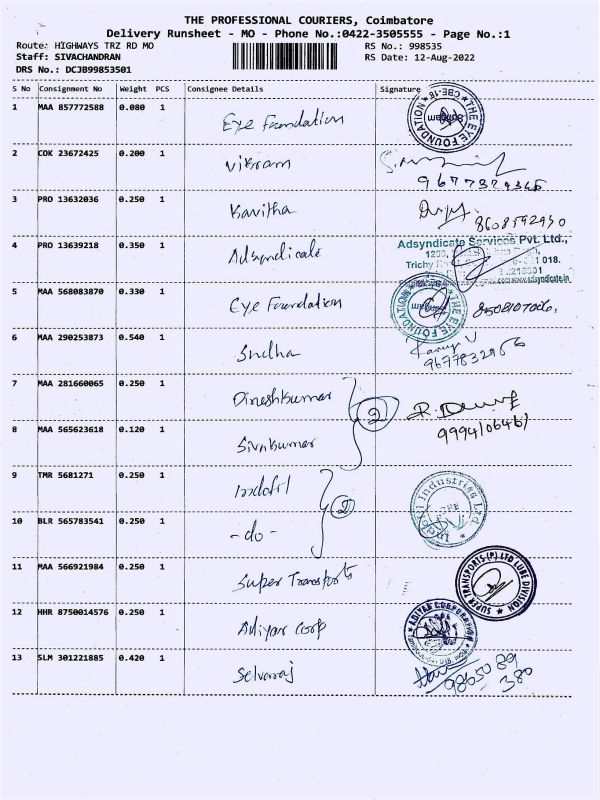 THE PROFESSIONAL COURIERS, Coimbatore
Delivery Runsheet - MO - Phone No.:0422-3505555 - Page No.:1
Route: HIGHWAYS TRZ RD MO RS No.: 998535
Staff: SIVACHANDRAN RS Date: 12-Aug-2022
DRS No.: DCJB99853501
S No Consignment No Weight PCS Consignee Details Signature
1 MAA 857772588 0.080 1 Eye Foundation THE EYE FOUNDATION CBE-18
2 COK 23672425 0.200 1 Vikram
9677329346
3 PRO 13632036 0.250 1 Kavitha
8608592930
4 PRO 13639218 0.350 1 Adsyndicate Adsyndicate Services Pvt. Ltd.,
Trichy 018.
5 MAA 568083870 0.330 1 Eye Foundation THE EYE FOUNDATION
6 MAA 290253873 0.540 1 Sudha
9677832956
7 MAA 281660065 0.250 1 Dineshkumar 2
8 MAA 565623618 0.120 1 Sivakumar
9 TMR 5681271 0.250 1 Industries Ltd
10 BLR 565783541 0.250 1 -do- 2
11 MAA 566921984 0.250 1 Super Transports SUPER TRANSPORTS (P) LTD LUBE DIVISION
12 HHR 8750014576 0.250 1 Adiyar Corp ADIYAR CORPORATION
13 SLM 301221885 0.420 1 Selvaraj